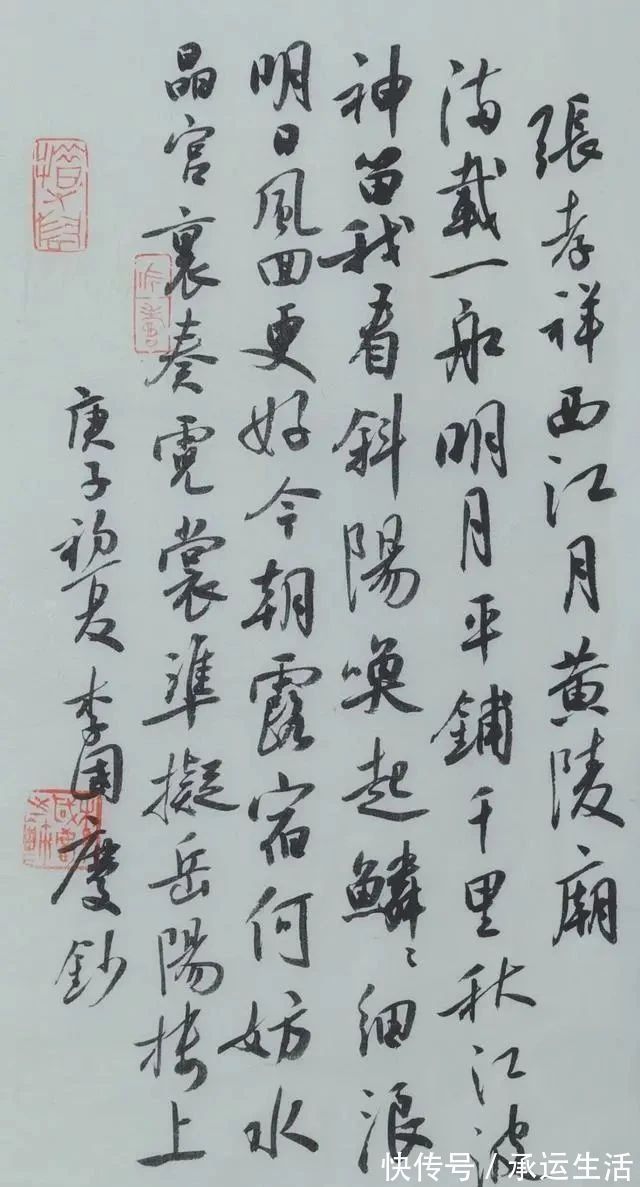 張孝祥西江月黄陵廟
滿載一船明月平鋪千里秋江波
神留我看斜陽喚起鱗〻細浪
明日風回更好今朝露宿何妨水
晶宮裏奏霓裳準擬岳陽樓上
庚子初夏李國慶鈔
快传号／承运生活